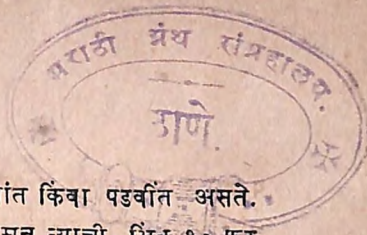 मराठी ग्रंथ संग्रहालय.
ठाणे.
ांत किंवा पडवींत असते.